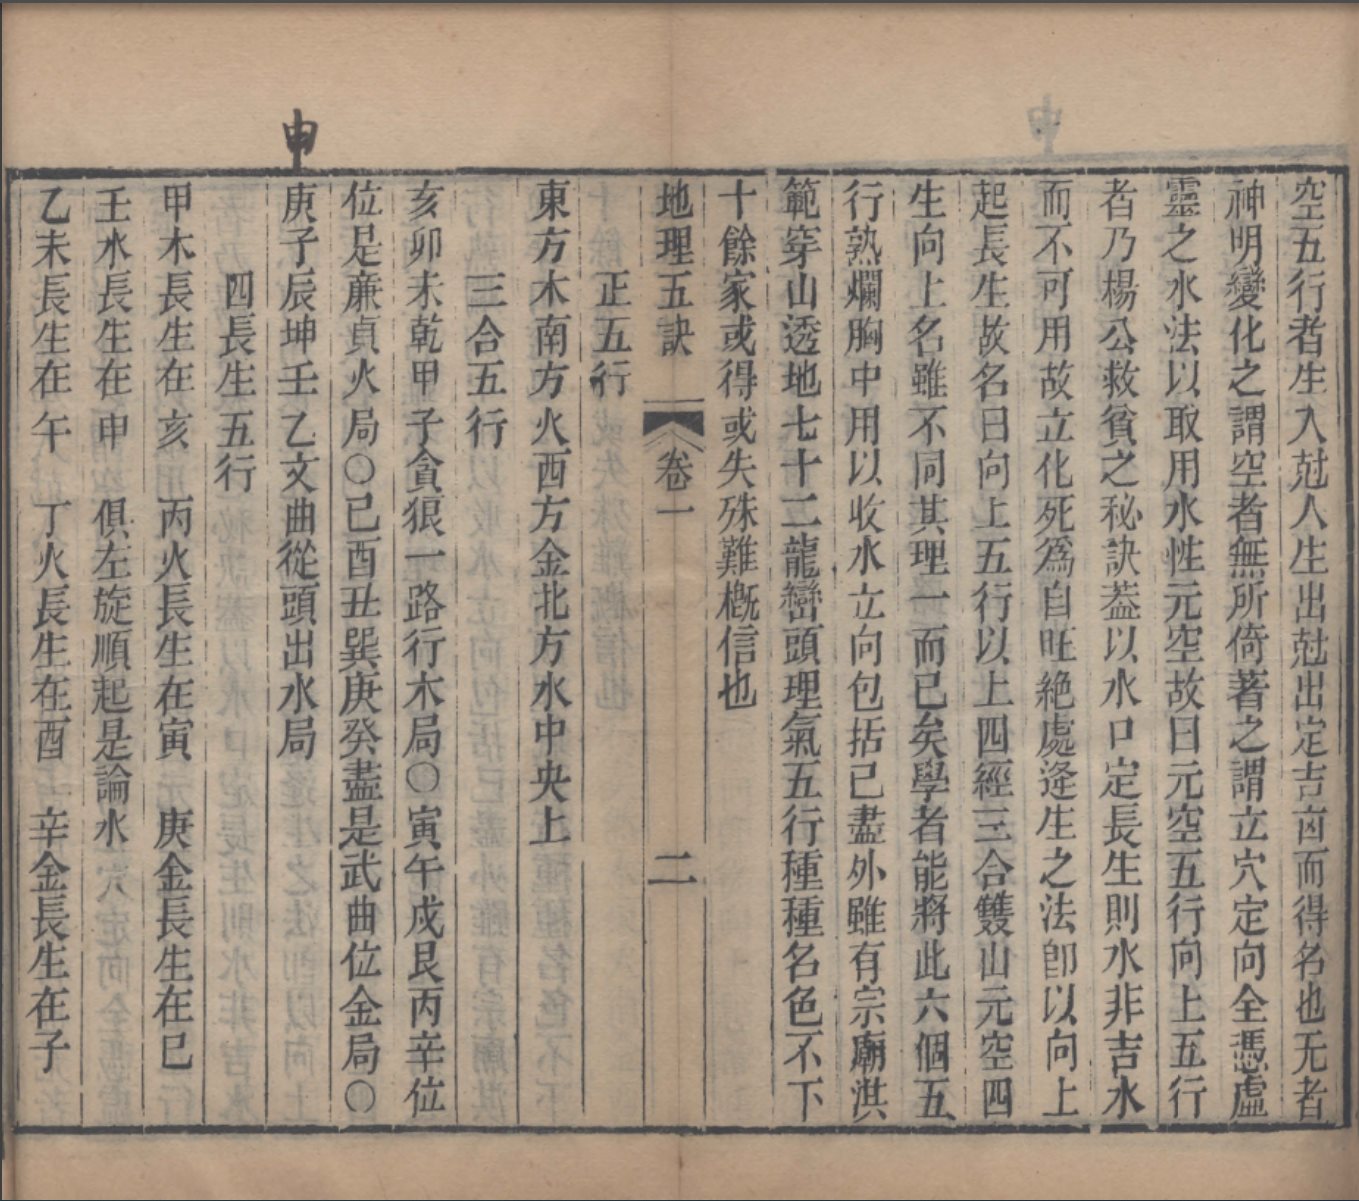 空五行者生入尅入生出尅出定吉凶而得名也元者
神明變化之謂空者無所倚著之謂立穴定向全憑虛
靈之水法以取用水性元空故曰元空五行向上五行
者乃楊公救貧之秘訣葢以水口定長生則水非吉水
而不可用故立化死為自旺絶處逢生之法卽以向上
起長生故名曰向上五行以上四經三合雙山元空四
生向上名雖不同其理一而已矣學者能將此六個五
行熟爛胸中用以收水立向包括已盡外雖有宗廟洪
範穿山透地七十二龍巒頭理氣五行種種名色不下
十餘家或得或失殊難概信也
地理五訣 卷一 二
正五行
東方木南方火西方金北方水中央土
三合五行
亥卯未乾甲丁貪狼一路行木局〇寅午戌艮丙辛位
位是廉貞火局〇巳酉丑巽庚癸盡是武曲位金局〇
申
庚子辰坤壬乙文曲從頭出水局
四長生五行
甲木長生在亥 丙火長生在寅 庚金長生在巳
壬水長生在申 俱左旋順起是論水
乙木長生在午 丁火長生在酉 辛金長生在子